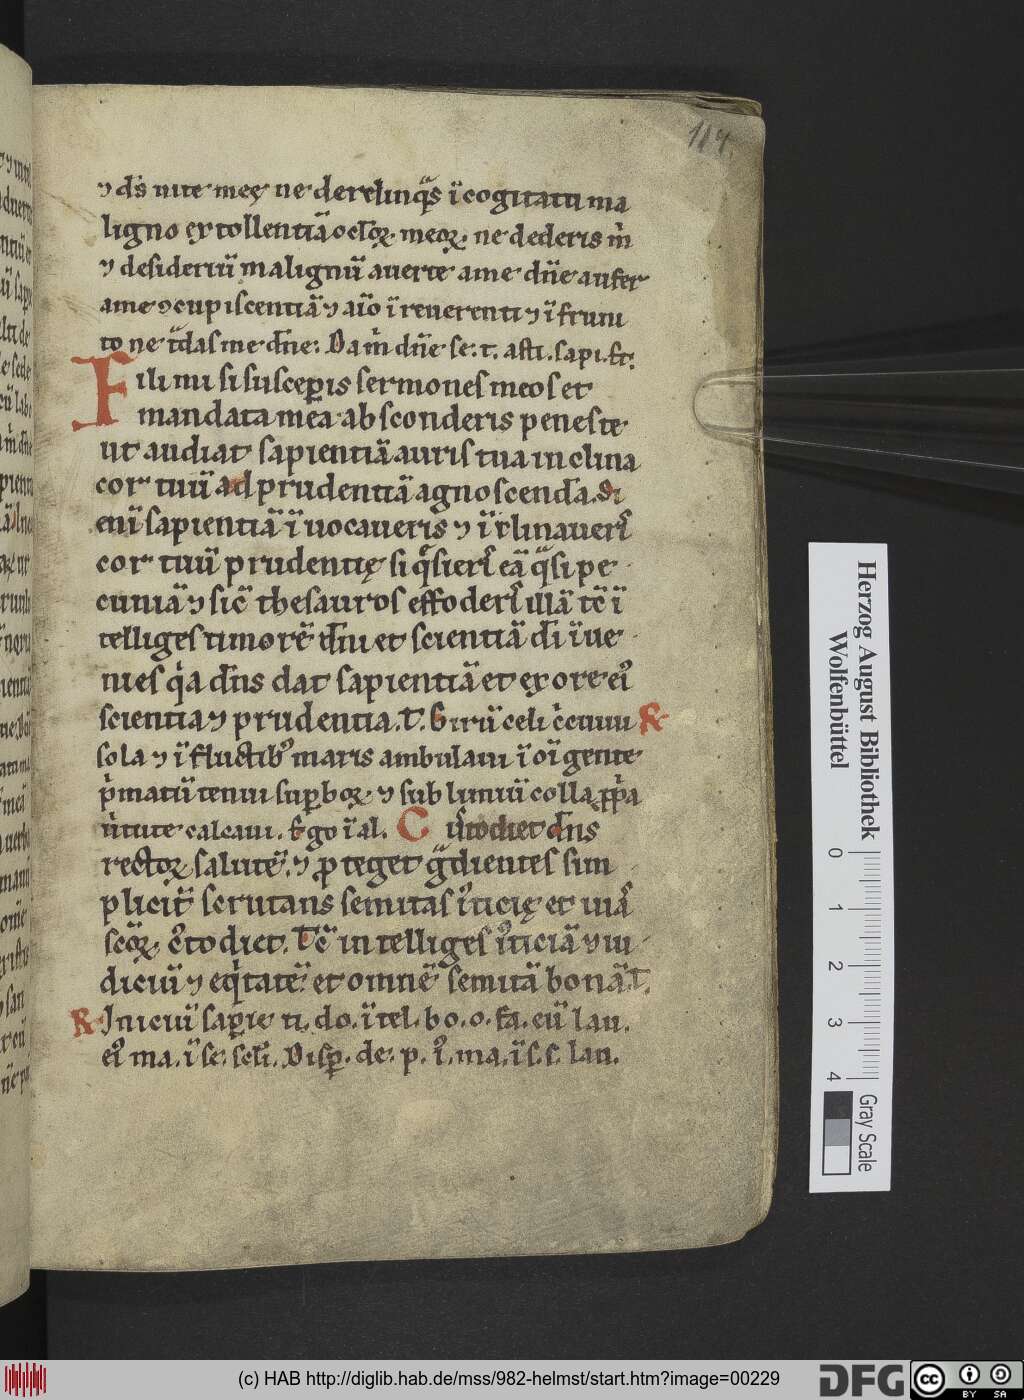 ⁊ ds uite meę ne derelinqͣs ı̄ cogitatu ma
ligno extollentiā oclorꝝ meorꝝ ne dederis m̍
⁊ desideriū malignū auerte a me dn̄e aufer
a me ꝯcupiscentiā ⁊ aīo ı̄reuerenti ⁊ ı̄frunı
to ne t͛das me dn̄e. Da m̍ dn̄e se. t. asti. sapi. Et.
Fili mi si susceꝑis sermones meos et
mandata mea absconderis penes te
ut audiat sapientiā auris tua inclina
cor tuū ad prudentiā agnoscendā. Si
enı̄ sapientiā ı̄uocaueris ⁊ ı̄clinauerˢ
cor tuū prudentię si qͥsierˢ eā qͣsi pe
cuniā ⁊ sic̄ thesauros effoderˢ illā tc̄ ı̄
telliges timorē dn̄i et scientiā dı̄ ı̄ue
nies qͥa dn̄s dat sapientiā et ex ore eiꝰ
scientia ⁊ prudentia. T. Girū celi c̍cuiui R
sola ⁊ ı̄ fluctibꝰ maris ambulaui ı̄ oı̄ gente
p̍matū tenui suꝑborꝝ ⁊ sublimiū colla ꝓp̍a
u̍tute calcaui. Ego ı̄ al. C uꝰtodiet dn̄s
rectorꝝ salutē. ⁊ ꝓteget gͣdientes sim
plicit͛ scrutans semitas iꝰticię et uiāˢ
sc̄orꝝ cꝰtodiet. Tc̄ intelliges iꝰticiā ⁊ iu
diciū ⁊ eqͥtatē et omnē semitā bonā. T.
R Iniciū sapīe ti. do. ı̄tel. bo. o. fa. eū lau.
eiꝰ ma. ı̄ se. sc̄li. Disꝑ. de. p. iꝰ. ma. ı̄ s. s. lau.
Herzog August Bibliothek
Wolfenbüttel
0 1 2 3 4
Gray Scale
(c) HAB http://diglib.hab.de/mss/982-helmst/start.htm?image=00229
DFG
cc
BY SA